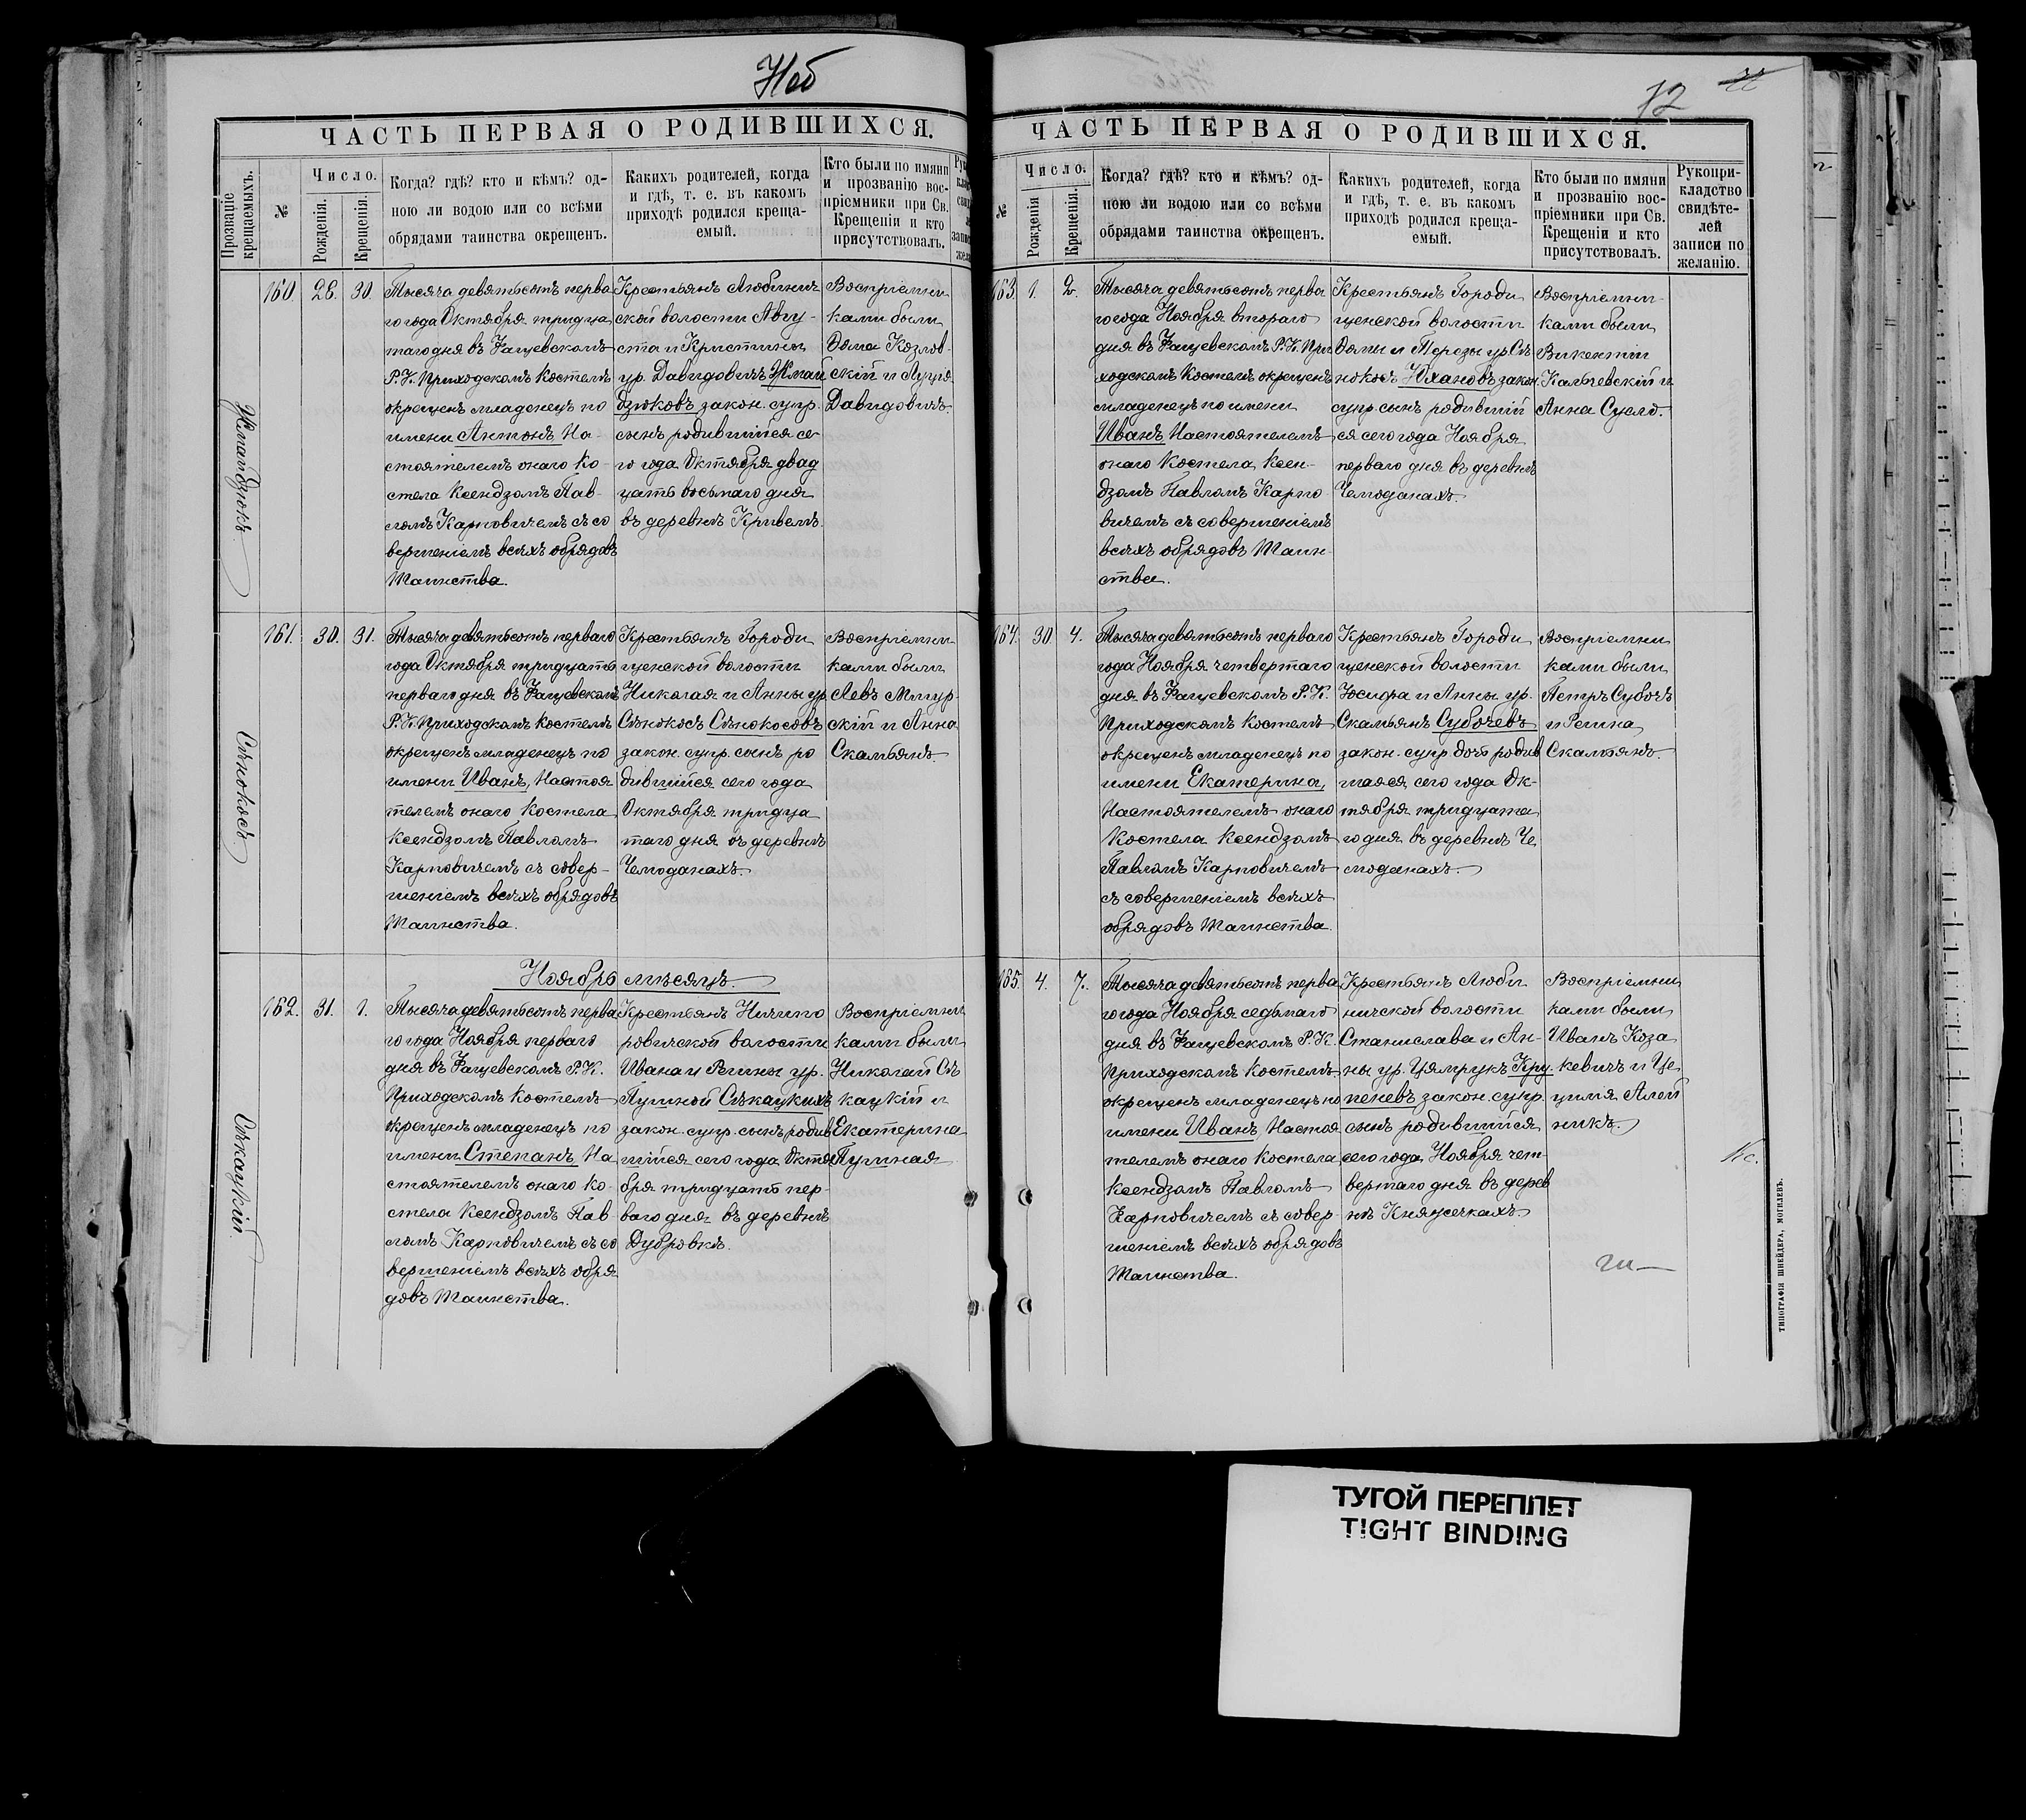 Ноб
ЧАСТЬ ПЕРВАЯ О РОДИВШИХСЯ.
Прозваніе крещаемыхъ.
№
Число.
Рожденія.
Крещенія.
Когда? гдѣ? кто и кѣмъ? од-
ною ли водою или со всѣми
обрядами таинства окрещенъ.
Какихъ родителей, когда
и гдѣ, т. е. въ какомъ
приходѣ родился креща-
емый.
Кто были по имяни
и прозванію вос-
пріемники при Св.
Крещеніи и кто
присутствовалъ.
Жмайдзюкъ
160. 28. 30.
Тысяча девятьсотъ перва
го года Октября тридца
таго дня въ Фащевскомъ
Р.К. Приходскомъ Костелѣ
окрещенъ младенецъ по
имени Антонъ На-
стоятелемъ онаго Ко-
стела Ксендзомъ Пав-
ломъ Карповичемъ съ со
вершеніемъ всѣхъ обрядовъ
Таинства.
Крестьянъ Любинич
ской волости Авгу-
ста и Кристины
ур. Давидовичъ Жмай
дзюковъ закон. супр.
сынъ родившійся се
го года Октября двад
цать восьмаго дня
въ деревнѣ Кривелѣ.
Воспріемни
ками были
Ѳома Козлов-
скій и Луція
Давидовичъ.
Сѣнокосъ
161. 30. 31.
Тысяча девятьсотъ перваго
года Октября тридцать
перваго дня въ Фащевскомъ
Р.К. Приходскомъ Костелѣ
окрещенъ младенецъ по
имени Иванъ, Настоя
телемъ онаго Костела
Ксендзомъ Павломъ
Карповичемъ съ совер-
шеніемъ всѣхъ обрядовъ
Таинства.
Крестьянъ Городи
щенской волости
Николая и Анны ур.
Сѣнокосъ Сѣнокосовъ
закон. супр. сынъ ро
дившійся сего года
Октября тридца
таго дня въ деревнѣ
Чемоданахъ.
Воспріемни
ками были
Левъ Мигур-
скій и Анна
Скамьянъ.
Ноябрь мѣсяцъ.
Сѣкацкій
162. 31. 1.
Тысяча девятьсотъ перва
го года Ноября перваго
дня въ Фащевскомъ Р.К.
Приходскомъ Костелѣ
окрещенъ младенецъ по
имени Степанъ, На
стоятелемъ онаго Ко-
стела Ксендзомъ Пав-
ломъ Карповичемъ съ со
вершеніемъ всѣхъ обря
довъ Таинства.
Крестьянъ Ничипо
ровичской волости
Ивана и Регины ур.
Пушной Сѣкацкихъ
закон. супр. сынъ родив
шійся сего года Октя
бря тридцать пер-
ваго дня въ деревнѣ
Дубровкѣ.
Воспріемни
ками были
Николай Сѣ
кацкій и
Екатерина
Пушная
72
ЧАСТЬ ПЕРВАЯ О РОДИВШИХСЯ.
№
Число.
Рожденія
Крещенія.
Когда? гдѣ? кто и кѣмъ? од-
ною ли водою или со всѣми
обрядами таинства окрещенъ.
Какихъ родителей, когда
и гдѣ, т. е. въ какомъ
приходѣ родился креща-
емый.
Кто были по имяни
и прозванію вос-
пріемники при Св.
Крещеніи и кто
присутствовалъ.
Рукопри-
кладство
свидѣте-
лей
записи по
желанію.
163. 1. 2.
Тысяча девятьсотъ перва
го года Ноября втораго
дня въ Фащевскомъ Р.К. При
ходскомъ Костелѣ окрещенъ
младенецъ по имени
Иванъ Настоятелемъ
онаго Костела, Ксен-
дзомъ Павломъ Карпо
вичемъ съ совершеніемъ
всѣхъ обрядовъ Таин-
ства.
Крестьянъ Городи
щенской волости
Ѳомы и Терезы ур. Сѣ
нокосъ Юхановъ закон.
супр. сынъ родившій
ся сего года Ноября
перваго дня въ деревнѣ
Чемоданахъ.
Воспріемни-
ками были
Викентій
Кальчевскій и
Анна Суело.
164. 30 4.
Тысяча девятьсотъ перваго
года Ноября четвертаго
дня въ Фащевскомъ Р.К.
Приходскомъ Костелѣ
окрещенъ младенецъ по
имени Екатерина,
Настоятелемъ онаго
Костела Ксендзомъ
Павломъ Карповичемъ
съ совершеніемъ всѣхъ
обрядовъ Таинства.
Крестьянъ Городи
щенской волости
Іосифа и Анны ур.
Скамьянъ Субочевъ
закон. супр. дочь родив
шаяся сего года Ок-
тября тридцата
го дня въ деревнѣ Че
моданахъ.
Воспріемни
ками были
Петръ Субочъ
и Регина
Скамьянъ.
165. 4. 7.
Тысяча девятьсотъ перва
го года Ноября седьмаго
дня въ Фащевскомъ Р.К.
Приходскомъ Костелѣ
окрещенъ младенецъ по
имени Иванъ, Настоя
телемъ онаго Костела
Ксендзомъ Павломъ
Карповичемъ съ совер-
шеніемъ всѣхъ обрядовъ
Таинства.
Крестьянъ Люби
ничской волости
Станислава и Ан-
ны ур. Цямрукъ Кру
пеневъ закон. супр.
сынъ родившійся
сего года Ноября чет-
вертаго дня въ дерев
нѣ Княжечкахъ.
Воспріемни
ками были
Иванъ Коза
кевичъ и Це
цилія Алей
никъ.
ТИПОГРАФІЯ ШНЕЙДЕРА, МОГИЛЕВЪ.
ТУГОЙ ПЕРЕПЛЕТ
TIGHT BINDING